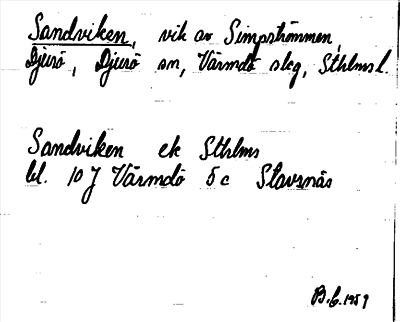 Sandviken, vik av Simpströmmen,
Djurö, Djurö sn, Värmdö slg, Sthlms l.
Sandviken ek Sthlms
bl. 10 J Värmdö 5 c Stavsnäs
B. G. 1959